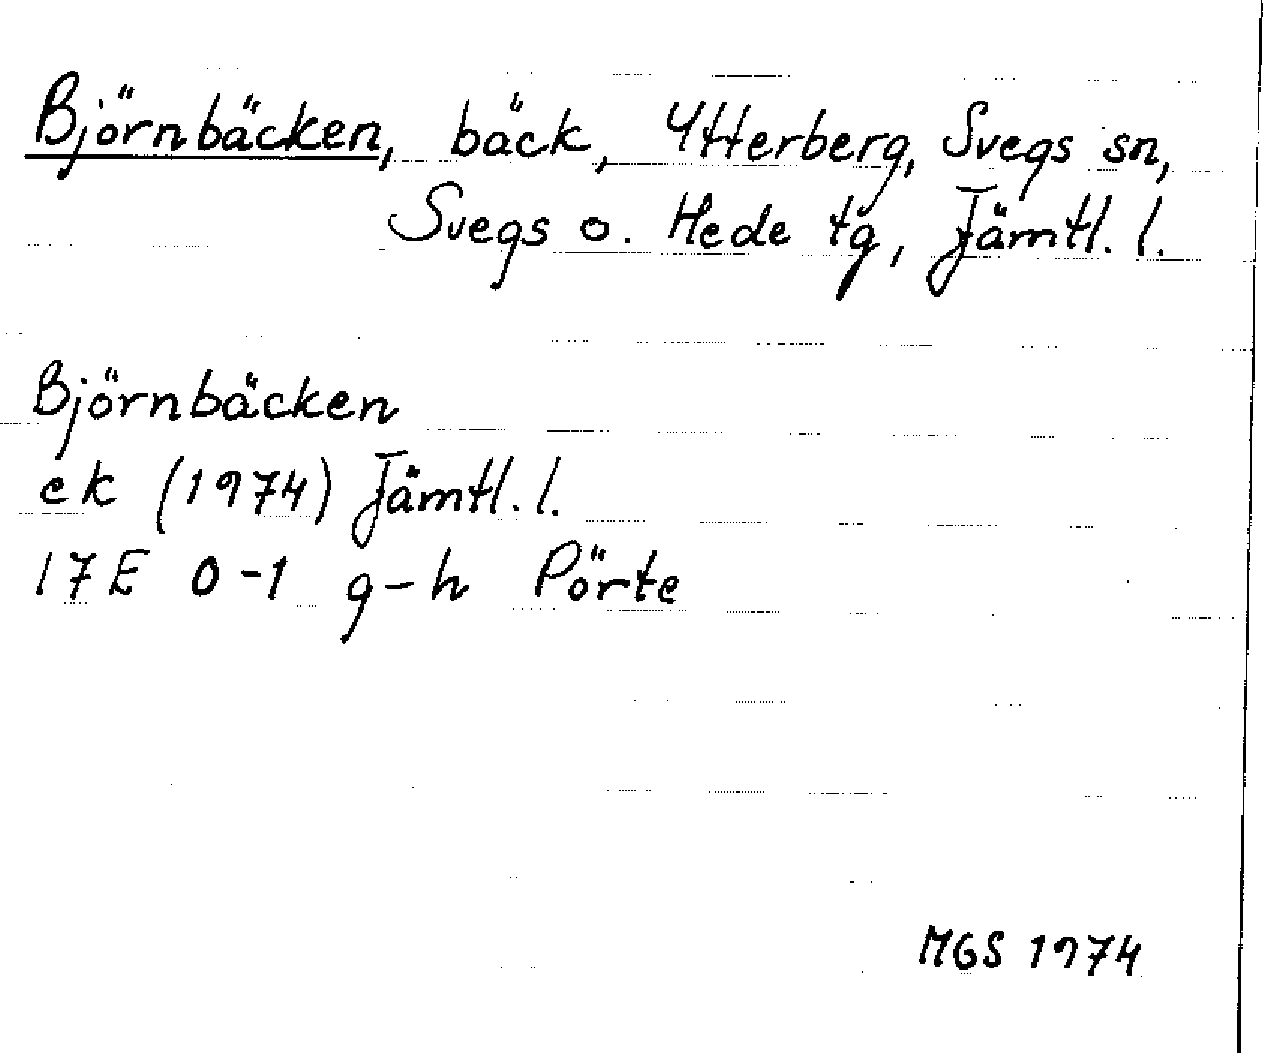 Björnbäcken, bäck, Ytterberg, Svegs sn,
Svegs o. Hede tg, Jämtl. l.
Björnbäcken
ek (1974) Jämtl. l.
17E 0-1 g-h Pörte
MGS 1974